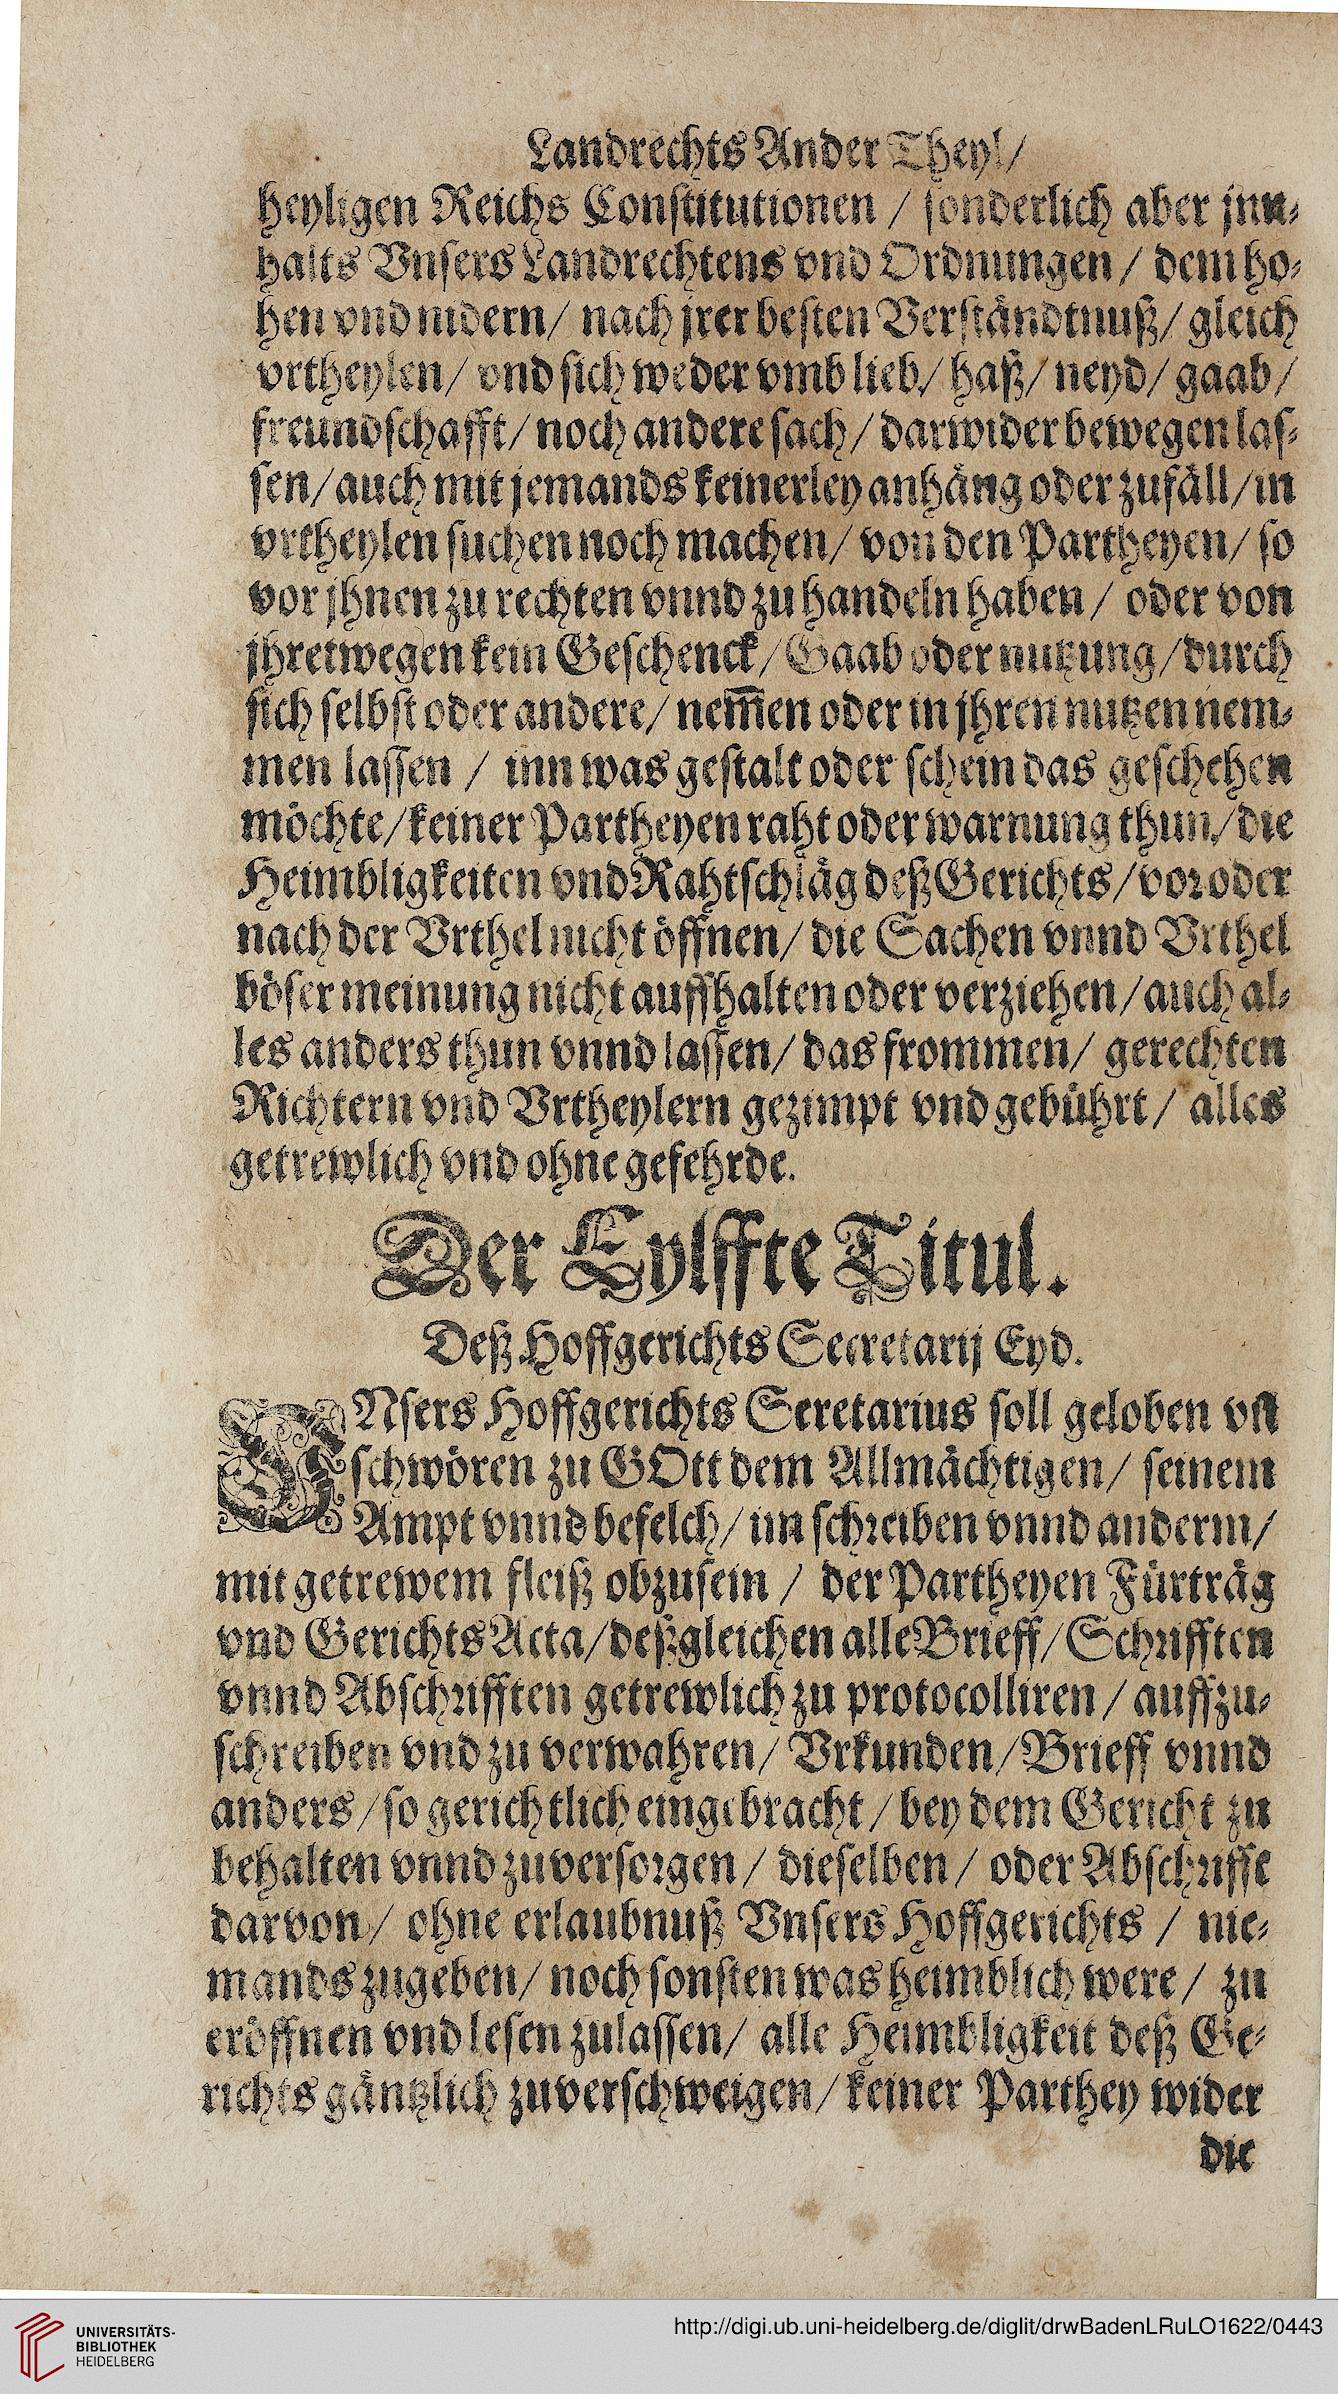 Landrechts Ander Theyl/
heyligen Reichs Constitutionen / sonderlich aber jnn-
halts Vnsers Landrechtens vnd Ordnungen / dem ho-
hen vnd nidern / nach jrer besten Verständtnuß / gleich
vrtheylen / vnd sich weder vmb lieb / haß / neyd / gaab /
freundschafft / noch andere sach / darwider bewegen las-
sen / auch mit jemands keinerley anhäng oder zufäll / in
vrtheylen suchen noch machen / von den Partheyen / so
vor jhnen zu rechten vnnd zu handeln haben / oder von
jhretwegen kein Geschenck / Gaab oder nutzung / durch
sich selbst oder andere / nem̅en oder in jhren nutzen nem-
men lassen / inn was gestalt oder schein das geschehen
möchte / keiner Partheyen raht oder warnung thun / die
Heimbligkeiten vnd Rahtschläg deß Gerichts / vor oder
nach der Vrthel nicht öffnen / die Sachen vnnd Vrthel
böser meinung nicht auffhalten oder verziehen / auch al-
les anders thun vnnd lassen / das frommen / gerechten
Richtern vnd Vrtheylern gezimpt vnd gebührt / alles
getrewlich vnd ohne gefehrde.
Der Eylffte Titul.
Deß Hoffgerichts Secretarij Eyd.
VNsers Hoffgerichts Seretarius soll geloben vñ
schwören zu GOtt dem Allmächtigen / seinem
Ampt vnnd befelch / im schreiben vnnd anderm /
mit getrewem fleiß obzusein / der Partheyen Fürträg
vnd Gerichts Acta / deßgleichen alle Brieff / Schrifften
vnnd Abschrifften getrewlich zu protocolliren / auffzu-
schreiben vnd zu verwahren / Vrkunden / Brieff vnnd
anders / so gerichtlich eingebracht / bey dem Gericht zu
behalten vnnd zuversorgen / dieselben / oder Abschrifft
darvon / ohne erlaubnuß Vnsers Hoffgerichts / nie-
mands zugeben / noch sonsten was heimblich were / zu
eröffnen vnd lesen zulassen / alle Heimbligkeit deß Ge-
richts gäntzlich zuverschweigen / keiner Parthey wider
die
UNIVERSITÄTS-
BIBLIOTHEK
HEIDELBERG
http://digi.ub.uni-heidelberg.de/diglit/drwBadenLRuLO1622/0443